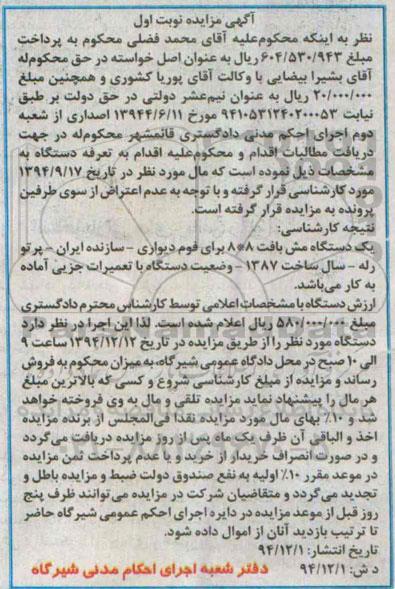 آگهی مزایده نوبت اول
نظر به اینکه محکوم‌علیه آقای محمد فضلی محکوم به پرداخت
مبلغ ۶۰۴/۵۳۰/۹۴۳ریال به عنوان اصل خواسته در حق محکوم‌له
آقای بشیرا بیضایی با وکالت آقای پوریا کشوری و همچنین مبلغ
۲۰/۰۰۰/۰۰۰ ریال به عنوان نیم‌عشر دولتی در حق دولت بر طبق
نیابت ۹۴۱۰۵۳۱۲۴۰۲۰۰۰۵۳ مورخ ۱۳۹۴۴/۶/۱۱ اصداری از شعبه
دوم اجرای احکم مدنی دادگستری قائمشهر محکوم‌له در جهت
دریافت مطالبات اقدام و محکوم‌علیه اقدام به تعرفه دستگاه به
مشخصات ذیل نموده است که مال مورد نظر در تاریخ ۱۳۹۴/۹/۱۷
مورد کارشناسی قرار گرفته و با توجه به عدم اعتراض از سوی طرفین
پرونده به مزایده قرار گرفته است.
نتیجه کارشناسی:
یک دستگاه مش بافت ۸*۸ برای فوم دیواری - سازنده ایران - پرتو
رله - سال ساخت ۱۳۸۷ - وضعیت دستگاه با تعمیرات جزیی آماده
به کار می‌باشد.
ارزش دستگاه با مشخصات اعلامی توسط کارشناس محترم دادگستری
مبلغ ۵۸۰/۰۰۰/۰۰۰ ریال اعلام شده است. لذا این اجرا در نظر دارد
دستگاه مورد نظر را از طریق مزایده در تاریخ ۱۳۹۴/۱۲/۱۲ ساعت ۹
الی ۱۰ صبح در محل دادگاه عمومی شیرگاه، به میزان محکوم به فروش
رساند و مزایده از مبلغ کارشناسی شروع و کسی که بالاترین مبلغ
هر مال را پیشنهاد نماید مزایده تلقی و مال به وی فروخته خواهد
شد و ۱۰٪ بهای مال مورد مزایده نقدا فی‌المجلس از برنده مزایده
اخذ و الباقی آن ظرف یک ماه پس از روز مزایده دریافت می‌گردد
و در صورت انصراف خریدار از خرید و یا عدم پرداخت ثمن مزایده
در موعد مقرر ۱۰٪ اولیه به نفع صندوق دولت ضبط و مزایده باطل و
تجدید می‌گردد و متقاضیان شرکت در مزایده می‌توانند ظرف پنج
روز قبل از موعد مزایده در دایره اجرای احکم عمومی شیرگاه حاضر
تا ترتیب بازدید آنان از اموال داده شود.
تاریخ انتشار: ۹۴/۱۲/۱
د ش: ۹۴/۱۲/۱ دفتر شعبه اجرای احکام مدنی شیرگاه